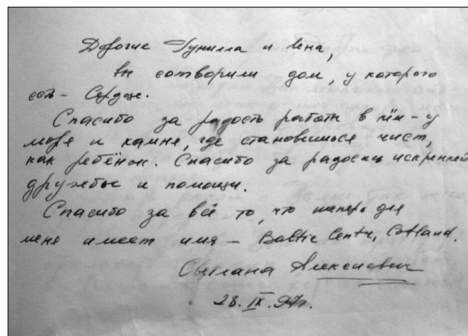 Дорогие Гунилла и Лена,
вы сотворили дом, у которого
есть – Сердце.
Спасибо за радость работы в нём – у
моря и камня, где становишься чист,
как ребёнок. Спасибо за радость искренней
дружбы и помощи.
Спасибо за всё то, что теперь для
меня имеет имя – Baltic Centr, Gotland.
Светлана Алексиевич
28. IX. 97г.